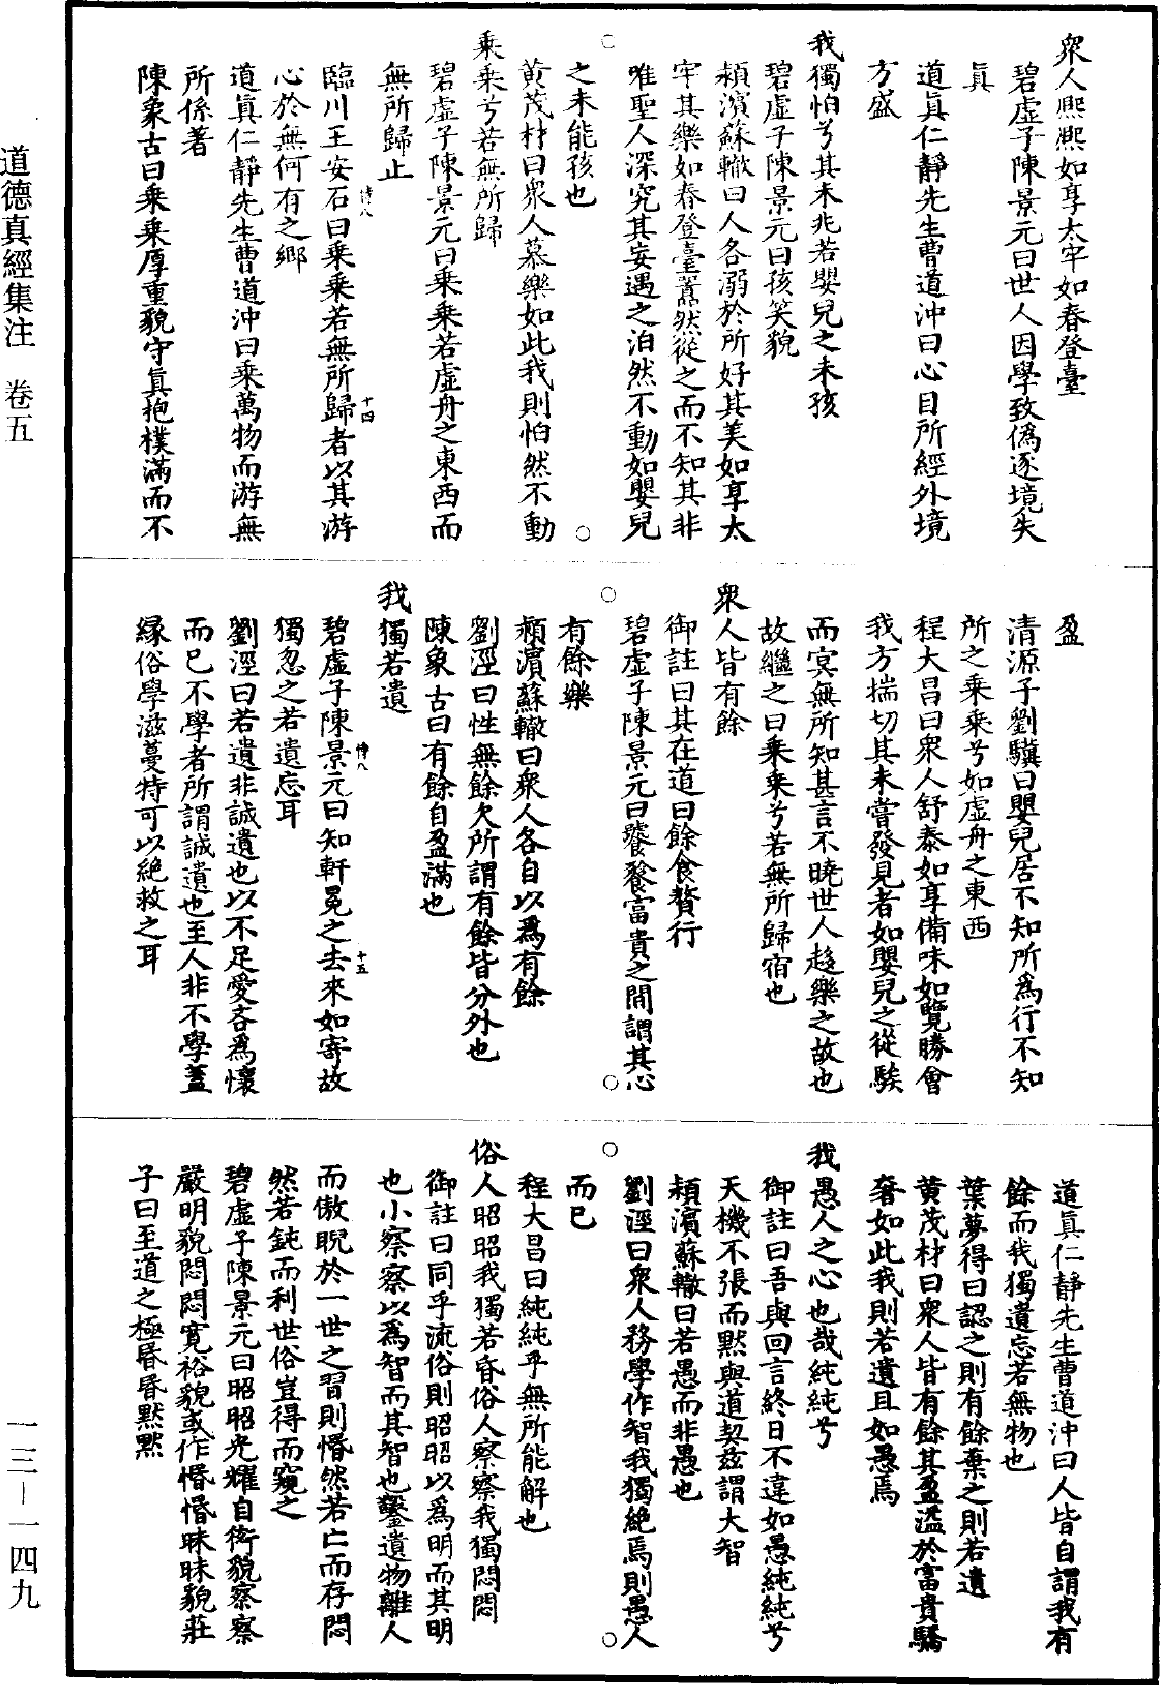 衆人熙熙如享太牢如春登臺
碧虛子陳景元曰世人因學致僞逐境失
眞
道眞仁靜先生曹道沖曰心目所經外境
方盛
我獨怕兮其未兆若嬰兒之未孩
碧虛子陳景元曰孩笑貌
潁濱蘇轍曰人各溺於所好其美如享太
牢其樂如春登臺囂然從之而不知其非
唯聖人深究其妄遇之泊然不動如嬰兒
之未能孩也
黄茂材曰衆人慕樂如此我則怕然不動
乘乘兮若無所歸
碧虛子陳景元曰乘乘若虛舟之東西而
無所歸止
臨川王安石曰乘乘若無所歸者以其游
心於無何有之鄉
道眞仁靜先生曹道沖曰乘萬物而游無
所係著
陳象古曰乘乘厚重貌守眞抱樸滿而不
盈
清源子劉驥曰嬰兒居不知所爲行不知
所之乘乘兮如虛舟之東西
程大昌曰衆人舒泰如享備味如覽勝會
我方揣切其未嘗發見者如嬰兒之從騃
而冥無所知甚言不曉世人趍樂之故也
故繼之曰乘乘兮若無所歸宿也
衆人皆有餘
御註曰其在道曰餘食贅行
碧虛子陳景元曰饕餮富貴之間謂其心
有餘樂
潁濱蘇轍曰衆人各自以爲有餘
劉涇曰性無餘欠所謂有餘皆分外也
陳象古曰有餘自盈滿也
我獨若遺
碧虛子陳景元曰知軒冕之去來如寄故
獨忽之若遺忘耳
劉涇曰若遺非誠遺也以不足愛吝爲懷
而已不學者所謂誠遺也至人非不學蓋
緣俗學滋蔓特可以絕救之耳
道眞仁靜先生曹道沖曰人皆自謂我有
餘而我獨遺忘若無物也
葉夢得曰認之則有餘棄之則若遺
黄茂材曰衆人皆有餘其盈溢於富貴驕
奢如此我則若遺且如愚焉
我愚人之心也哉純純兮
御註曰吾與回言終日不違如愚純純兮
天機不張而默與道契兹謂大智
潁濱蘇轍曰若愚而非愚也
劉涇曰衆人務學作智我獨絕焉則愚人
而已
程大昌曰純純乎無所能解也
俗人昭昭我獨若昏俗人察察我獨悶悶
御註曰同乎流俗則昭昭以爲明而其明
也小察察以爲智而其智也鑿遺物離人
而傲睨於一世之習則惛然若亡而存悶
然若鈍而利世俗豈得而窺之
碧虛子陳景元曰昭昭光耀自衒貌察察
嚴明貌悶悶寬裕貌或作惛惛昧昧貌莊
子曰至道之極昏昏默默
道德真經集注　卷五
一三－一四九
悼八
十四
悼八
十五